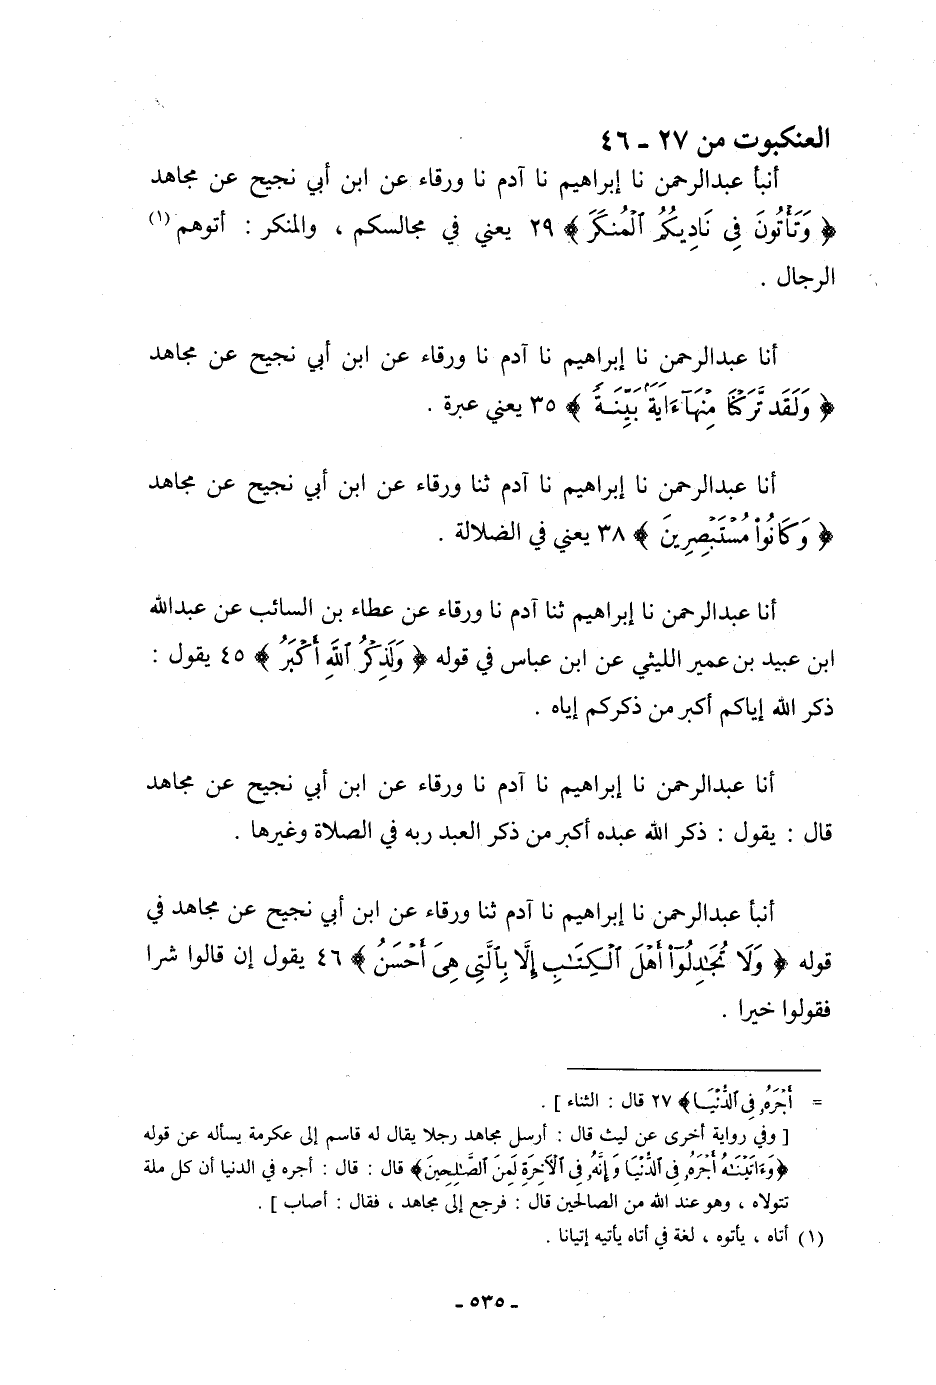 العنكبوت من ٢٧ ـ ٤٦
أنبأ عبدالرحمن نا إبراهيم نا آدم نا ورقاء عن ابن أبي نجيح عن مجاهد
﴿ وَتَأْتُونَ فِى نَادِيكُمُ ٱلْمُنكَرَ ﴾ ٢٩ يعني في مجالسكم ، والمنكر : أتوهم (١)
الرجال .
أنا عبدالرحمن نا إبراهيم نا آدم نا ورقاء عن ابن أبي نجيح عن مجاهد
﴿ وَلَقَد تَّرَكْنَا مِنْهَآ ءَايَةًۢ بَيِّنَةً ﴾ ٣٥ يعني عبرة .
أنا عبدالرحمن نا إبراهيم نا آدم ثنا ورقاء عن ابن أبي نجيح عن مجاهد
﴿ وَكَانُوا۟ مُسْتَبْصِرِينَ ﴾ ٣٨ يعني في الضلالة .
أنا عبدالرحمن نا إبراهيم ثنا آدم نا ورقاء عن عطاء بن السائب عن عبدالله
ابن عبيد بن عمير الليثي عن ابن عباس في قوله ﴿ وَلَذِكْرُ ٱللَّهِ أَكْبَرُ ﴾ ٤٥ يقول :
ذكر الله إياكم أكبر من ذكركم إياه .
أنا عبدالرحمن نا إبراهيم نا آدم نا ورقاء عن ابن أبي نجيح عن مجاهد
قال : يقول : ذكر الله عبده أكبر من ذكر العبد ربه في الصلاة وغيرها .
أنبأ عبدالرحمن نا إبراهيم نا آدم ثنا ورقاء عن ابن أبي نجيح عن مجاهد في
قوله ﴿ وَلَا تُجَٰدِلُوٓا۟ أَهْلَ ٱلْكِتَٰبِ إِلَّا بِٱلَّتِى هِىَ أَحْسَنُ ﴾ ٤٦ يقول إن قالوا شرا
فقولوا خيرا .
= أَجْرَهُۥ فِى ٱلدُّنْيَا ﴾ ٢٧ قال : الثناء ] .
[ وفي رواية أخرى عن ليث قال : أرسل مجاهد رجلا يقال له قاسم إلى عكرمة يسأله عن قوله
﴿وَءَاتَيْنَٰهُ أَجْرَهُۥ فِى ٱلدُّنْيَا وَإِنَّهُۥ فِى ٱلْءَاخِرَةِ لَمِنَ ٱلصَّٰلِحِينَ﴾ قال : قال : أجره في الدنيا أن كل ملة
تتولاه ، وهو عند الله من الصالحين قال : فرجع إلى مجاهد ، فقال : أصاب ] .
(١) أتاه ، يأتوه ، لغة في أتاه يأتيه إتيانا .
ـ ٥٣٥ ـ